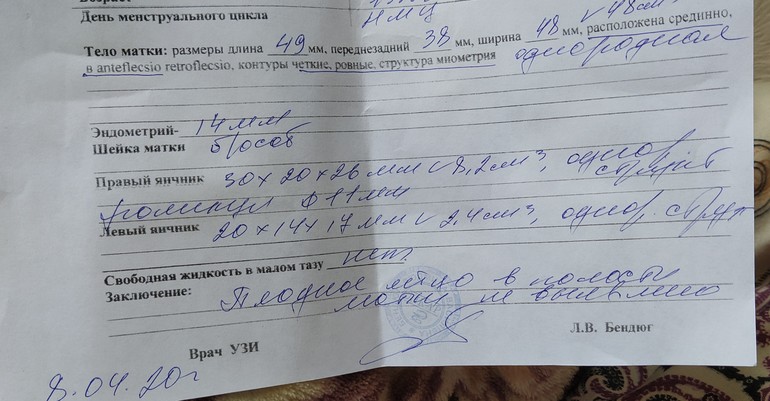 День менструального цикла НМЦ
Тело матки: размеры длина 49 мм, переднезадний 38 мм, ширина 48 мм, расположена срединно, V 48 см³
в anteflecsio retroflecsio, контуры четкие, ровные, структура миометрия однородная
Эндометрий- 14 мм
Шейка матки б/особ
Правый яичник 30 x 20 x 26 мм V 8,2 см³, однор. структ
фолликул ф 11 мм
Левый яичник 20 x 14 x 17 мм V 2.4 см³, однор. структ
Свободная жидкость в малом тазу нет
Заключение: Плодное яйцо в полости
матки не выявлено
Л.В. Бендюг
Врач УЗИ
8.04.20г